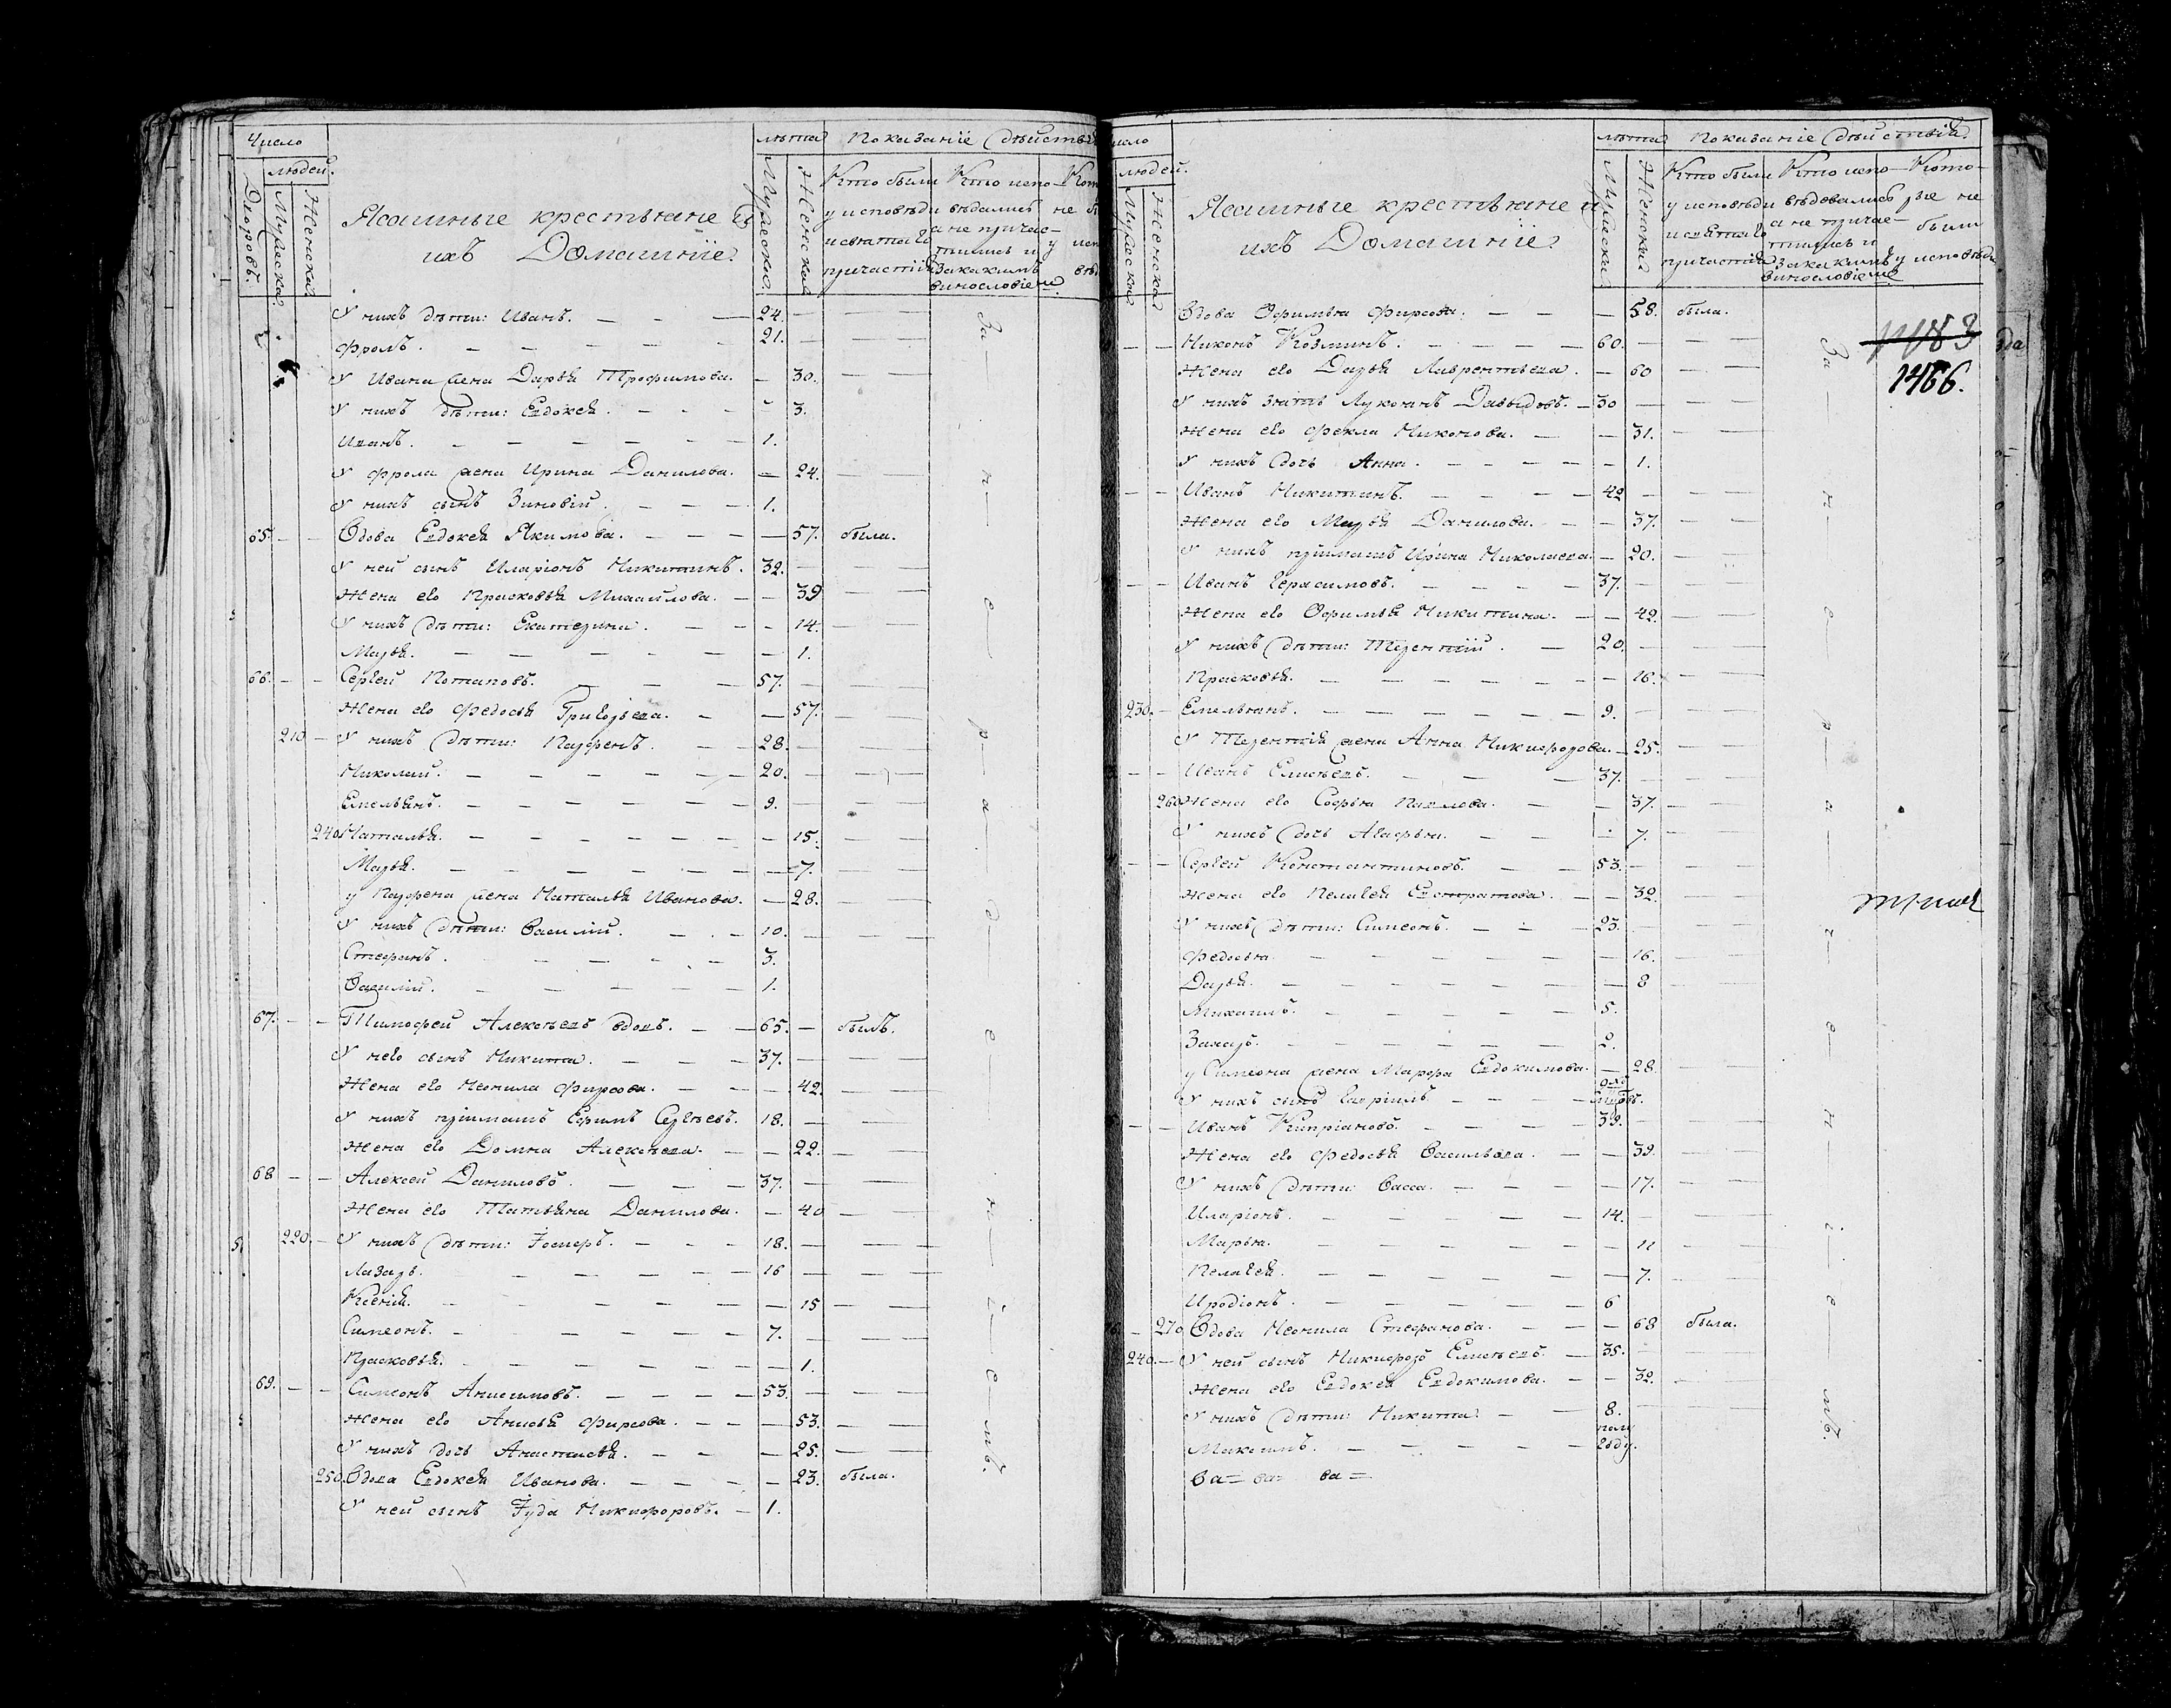 Число
людей.
Дворовъ.
Мужеска.
Женска.
Ясашные крестьяне и
ихъ Домашніе.
лѣта
Мужеска.
Женска.
Показаніе дѣйств
Кто были
у исповѣди
и святаго
причастія
Кто испо-
вѣдались
а не прича-
тились и
за какимъ
винословіемъ
У нихъ дѣти: Иванъ. 24.
Фролъ. 21.
У Ивана жена Дарья Трофимова. 30.
У нихъ дѣти: Евдокея. 3.
Иванъ. 1.
У Фрола жена Ирина Данилова. 24.
У нихъ сынъ Зиновій. 1.
65. Вдова Евдокея Якимова. 57. была.
У ней сынъ Иларіонъ Никитинъ. 32.
Жена его Прасковья Михайлова. 39
У нихъ дѣти: Екатерина. 14.
Марья. 1.
66. Сергей Потаповъ. 57.
Жена его Федосья Григорьева. 57.
210 У нихъ дѣти: Парфенъ. 28.
Николай. 20.
Емельянъ. 9.
240 Наталья. 15.
Марья. 7.
у Парфена жена Наталья Иванова. 28.
У нихъ дѣти: Василій. 10.
Стефанъ. 3.
Василій. 1.
67. Тимофей Алексѣевъ вдовъ. 65. былъ.
У него сынъ Никита. 37.
Жена его Неонила Фирсова. 42.
У нихъ пріимышъ Ефимъ Сергѣевъ. 18.
Жена его Домна Алексѣева. 22.
68 Алексей Даниловъ. 37.
Жена его Татьяна Данилова. 40
220. У нихъ дѣти: Іосифъ. 18.
Лазарь. 16
Ксенія. 15
Симеонъ. 7.
Прасковья. 1.
69. Симеонъ Анисимовъ. 53.
Жена его Анисья Фирсова. 53.
У нихъ дочь Анастасья. 25.
250. Вдова Евдокея Иванова. 23. была.
У ней сынъ Іуда Никифоровъ. 1.
За нераденіемъ.
людей.
Мужеска.
Женска.
Ясашные крестьяне и
ихъ Домашніе.
лѣта
Мужеска.
Женска.
Показаніе дѣйствія.
Кто были
у исповѣди
и святаго
причастія
Кто испо-
вѣдовались
а не прича-
тились и
за какимъ
винословіемъ
Кото-
рые не
были
у исповѣди
Вдова Офимья Фирсова. 58. была.
Никонъ Козминъ. 60.
Жена его Дарья Лаврентьева. 60
У нихъ зять Лукоянъ Давыдовъ. 30
Жена его Фекла Никонова. 31.
У нихъ дочь Анна. 1.
Иванъ Никитинъ. 42
Жена его Марья Данилова. 37.
У нихъ пріимышъ Ирина Николаева. 20.
Иванъ Герасимовъ. 37.
Жена его Офимья Никитина. 42.
У нихъ дѣти: Терентій. 20.
Прасковья. 16.
230. Емельянъ. 9.
У Терентія жена Анна Никифорова. 25.
Иванъ Елисѣевъ. 37.
260 Жена его Софья Павлова. 37.
У нихъ дочь Агафья. 7.
Сергей Константиновъ. 53.
Жена его Пелагея Евстратова. 32.
У нихъ дѣти: Симеонъ. 23.
Федосья. 16.
Дарья. 8
Михаилъ. 5.
Захаръ. 2.
у Симеона жена Марфа Евдокимова. 28.
У нихъ сынъ Гавріилъ
Иванъ Кипріановъ. 39.
Жена его Федосья Васильева. 39.
У нихъ дѣти: Васса. 17.
Иларіонъ. 14.
Марья. 11
Пелагея. 7.
Иродіонъ. 6
270 Вдова Неонила Стефанова. 68 была.
240. У ней сынъ Никифоръ Елисѣевъ. 35.
Жена его Евдокея Евдокимова. 32.
У нихъ дѣти: Никита. 8.
Максимъ. полугоду.
За нераденіемъ.
1466.